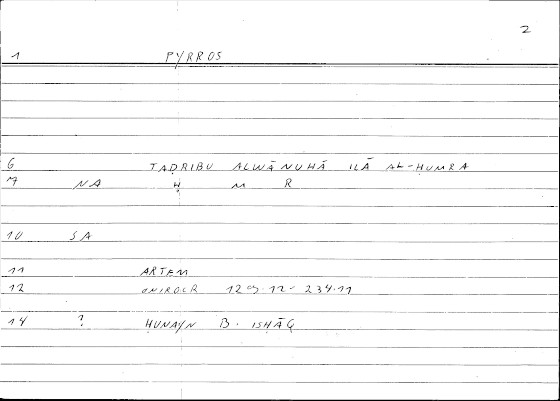 2
1 PYRROS
6 TAḌRIBU ALWĀNUHĀ ILĀ AL-ḤUMRA
7 NA Ḥ M R
10 SA
11 ARTEM
12 ONIROCR 234.11
14 ? ḤUNAYN B. ISḤĀQ